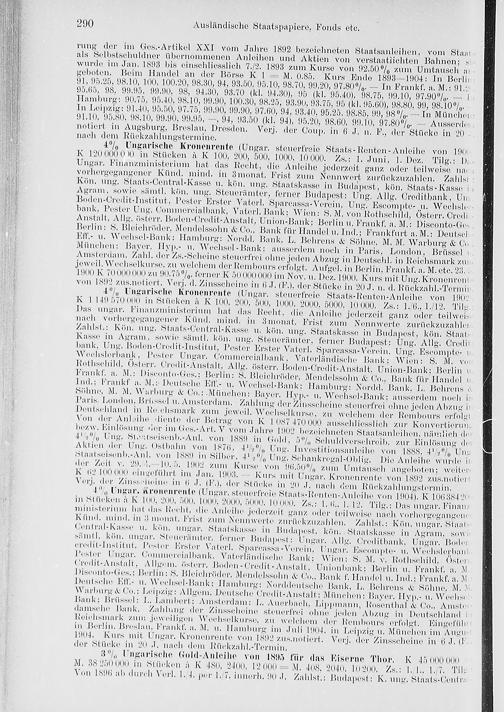 290 Ausländische Staatspapiere, Fonds etc.
rung der im Ges.-Artikel XXI vom Jahre 1892 bezeichneten Staatsanleihen, vom
als Selbstschuldner übernommenen Anleihen und Aktien von verstaatlichten Bahnen;
wurde im Jan. 1893 bis einschliesslich 7./2. 1893 zum Kurse von 92.50% zum Umtausch
geboten. Beim Handel an der Börse K 1 = M. 0.85. Kurs Ende 1893—1904: In Berlin:
91, 95.25, 98.10, 100, 100.20, 98.30, 94, 93.50, 95.10, 98.70, 99.20, 97.80% — In Frankf. a. M.:
95.65, 98, 99.95, 99.90, 98, 94.30, 93.70 (kl. 94.30), 95 (kl. 95.40), 98.75, 99.10, 97.90% —
Hamburg: 90.75, 95.40, 98.10, 99.90, 100.30, 98.25, 93.90, 93.75, 95 (kl. 95.60), 98.80, 99, 98.10% —
In Leipzig: 91.40, 95.50, 97.75, 99.90, 99.90, 97.60, 94, 93.40, 95.25, 98.85, 99, 98% — In München:
91.10, 95.80, 98.10, 99.90, 99.95, —, 94, 93.50 (kl. 94), 95.20, 98.60, 99.10, 97.80% —
notiert in Augsburg, Breslau, Dresden. Verj. der Coup. in 6 J. n. F., der Stücke in 20
nach dem Rückzahlungstermine.
4% Ungarische Kronenrente (Ungar. steuerfreie Staats-Renten-Anleihe von
K 120 000 000 in Stücken à K 100, 200, 500, 1000, 10 000. Zs.: 1. Juni, 1. Dez. Tilg.:
Ungar. Finanzministerium hat das Recht, die Anleihe jederzeit ganz oder teilweise
vorhergegangener Künd. mind. in 3 monat. Frist zum Nennwert zurückzuzahlen.
Kön. ung. Staats-Central-Kasse u. kön. ung. Staatskasse in Budapest, kön. Staats-Kasse
Agram, sowie sämtl. kön. ung. Steuerämter, ferner Budapest: Ung. allg. Creditbank,
Boden-Credit-Institut, Pester Erster Vaterl. Sparcassa-Verein, Ung. Escompte- u.
bank, Pester Ung. Commercialbank, Vaterl. Bank; Wien: S. M. von Rothschild, Österr.
Anstalt, Allg. österr. Boden-Credit-Anstalt, Union-Bank; Berlin u. Frankf. a. M.: Disconto-Ges.
Berlin: S. Bleichröder, Mendelssohn & Co., Bank für Handel u. Ind.; Frankfurt a. M.:
Eff.- u. Wechsel-Bank; Hamburg: Nordd. Bank, L. Behrens & Söhne, M. M. Warburg &
München: Bayer. Hyp.- u. Wechsel-Bank; ausserdem noch in Paris, London, Brüssel
Amsterdam. Zahl. der Zs.-Scheine steuerfrei ohne jeden Abzug in Deutschl. in Reichsmark
jeweil. Wechselkurse, zu welchem der Rembours erfolgt. Aufgel. in Berlin, Frankf. a. M. etc. 23.
1900 K 70 000 000 zu 90.75%, ferner K 50 000 000 im Nov. u. Dez. 1900. Kurs mit Ung. Kronenrente
von 1892 zus.notiert. Verj. d. Zinsscheine in 6 J. (F.), der Stücke in 20 J. n. d. Rückzahl.-Termin
4% Ungarische Kronenrente (Ungar. steuerfreie Staats-Renten-Anleihe von
K 1 149 570 000 in Stücken à K 100, 200, 500, 1000, 2000, 5000, 10 000. Zs.: 1./6., 1./12.
Das ungar. Finanzministerium hat das Recht, die Anleihe jederzeit ganz oder
nach vorhergegangener Künd. mind. in 3 monat. Frist zum Nennwerte
Zahlst.: Kön. ung. Staats-Central-Kasse u. kön. ung. Staatskasse in Budapest, kön.
Kasse in Agram, sowie sämtl. kön. ung. Steuerämter, ferner Budapest: Ung. Allg.
bank, Ung. Boden-Credit-Institut, Pester Erster Vaterl. Sparcassa-Verein, Ung. Escompte-
Wechslerbank, Pester Ungar. Commercialbank, Vaterländische Bank; Wien: S. M.
Rothschild, Österr. Credit-Anstalt, Allg. österr. Boden-Credit-Anstalt, Union-Bank; Berlin
Frankf. a. M.: Disconto-Ges.; Berlin: S. Bleichröder, Mendelssohn & Co., Bank für Handel
Ind.; Frankf. a. M.: Deutsche Eff.- u. Wechsel-Bank; Hamburg: Nordd. Bank, L. Behrens
Söhne, M. M. Warburg & Co.; München: Bayer. Hyp.- u. Wechsel-Bank; ausserdem noch
Paris, London, Brüssel u. Amsterdam. Zahlung der Zinsscheine steuerfrei ohne jeden Abzug
Deutschland in Reichsmark zum jeweil. Wechselkurse, zu welchem der Rembours
Von der Anleihe diente der Betrag von K 1 087 470 000 ausschliesslich zur
bezw. Einlösung der im Ges.-Art. V vom Jahre 1902 bezeichneten Staatsanleihen, nämlich
4½% Ung. Staatseisenb.-Anl. von 1889 in Gold, 5% Schuldverschreib. zur Einlösung
Aktien der Ung. Ostbahn von 1876, 4½% Ung. Investitionsanleihe von 1888, 4½%
Staatseisenb.-Anl. von 1889 in Silber, 4½% Ung. Schankregal-Oblig. Die Anleihe wurde
der Zeit v. 29./1.—10./5. 1902 zum Kurse von 96.50% zum Umtausch angeboten;
K 62 100 000 eingeführt im Jan. 1903. — Kurs mit Ungar. Kronenrente von 1892 zus.notiert
Verj. der Zinsscheine in 6 J. (F.), der Stücke in 20 J. nach dem Rückzahlungstermin.
4% Ungar. Kronenrente (Ungar. steuerfreie Staats-Renten-Anleihe von 1904).
in Stücken à K 100, 200, 500, 1000, 2000, 5000, 10 000. Zs.: 1./6., 1./12. Tilg.: Das ungar.
ministerium hat das Recht, die Anleihe jederzeit ganz oder teilweise nach
Künd. mind. in 3 monat. Frist zum Nennwerte zurückzuzahlen. Zahlst.: Kön. ungar.
Central-Kasse u. kön. ungar. Staatskasse in Budapest, kön. Staatskasse in Agram,
sämtl. kön. ungar. Steuerämter, ferner Budapest: Ungar. Allg. Creditbank, Ungar.
credit-Institut, Pester Erster Vaterl. Sparcassa-Verein, Ungar. Escompte- u.
Pester Ungar. Commercialbank, Vaterländische Bank; Wien: S. M. v. Rothschild,
Credit-Anstalt, Allgem. österr. Boden-Credit-Anstalt, Unionbank; Berlin u. Frankf. a. M.
Disconto-Ges.; Berlin: S. Bleichröder, Mendelssohn & Co., Bank f. Handel u. Ind.; Frankf. a. M.
Deutsche Eff.- u. Wechsel-Bank; Hamburg: Norddeutsche Bank, L. Behrens & Söhne, M.
Warburg & Co.; Leipzig: Allgem. Deutsche Credit-Anstalt; München: Bayer. Hyp.- u.
Bank; Brüssel: L. Lambert; Amsterdam: L. Auerbach, Lippmann, Rosenthal & Co.,
damsche Bank. Zahlung der Zinsscheine steuerfrei ohne jeden Abzug in Deutschland
Reichsmark zum jeweiligen Wechselkurse, zu welchem der Rembours erfolgt.
in Berlin, Breslau, Frankf. a. M. u. Hamburg im Juli 1904, in Leipzig u. München im
1904. Kurs mit Ungar. Kronenrente von 1892 zus.notiert. Verj. der Zinsscheine in 6 J.
der Stücke in 20 J. nach dem Rückzahl.-Termin.
3% Ungarische Gold-Anleihe von 1895 für das Eiserne Thor. K 45 000 000
M. 38 250 000 in Stücken à K 480, 2400, 12 000 = M. 408, 2040, 10 200. Zs.: 1./1., 1./7.
Von 1896 ab durch Verl. 1./4. per 1./7. innerh. 90 J. Zahlst.: Budapest: K. ung.